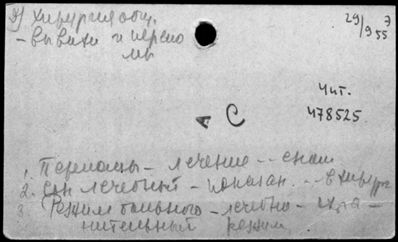 8) Хирургия общ.
- вывихи и перело
мы
29/9 55
7
Чит.
478525.
А С
1. Переломы - лечение -- сном
2. Сон лечебный - показан. ... в хирург
3. Режим больного - лечебно - охра -
нительный режим